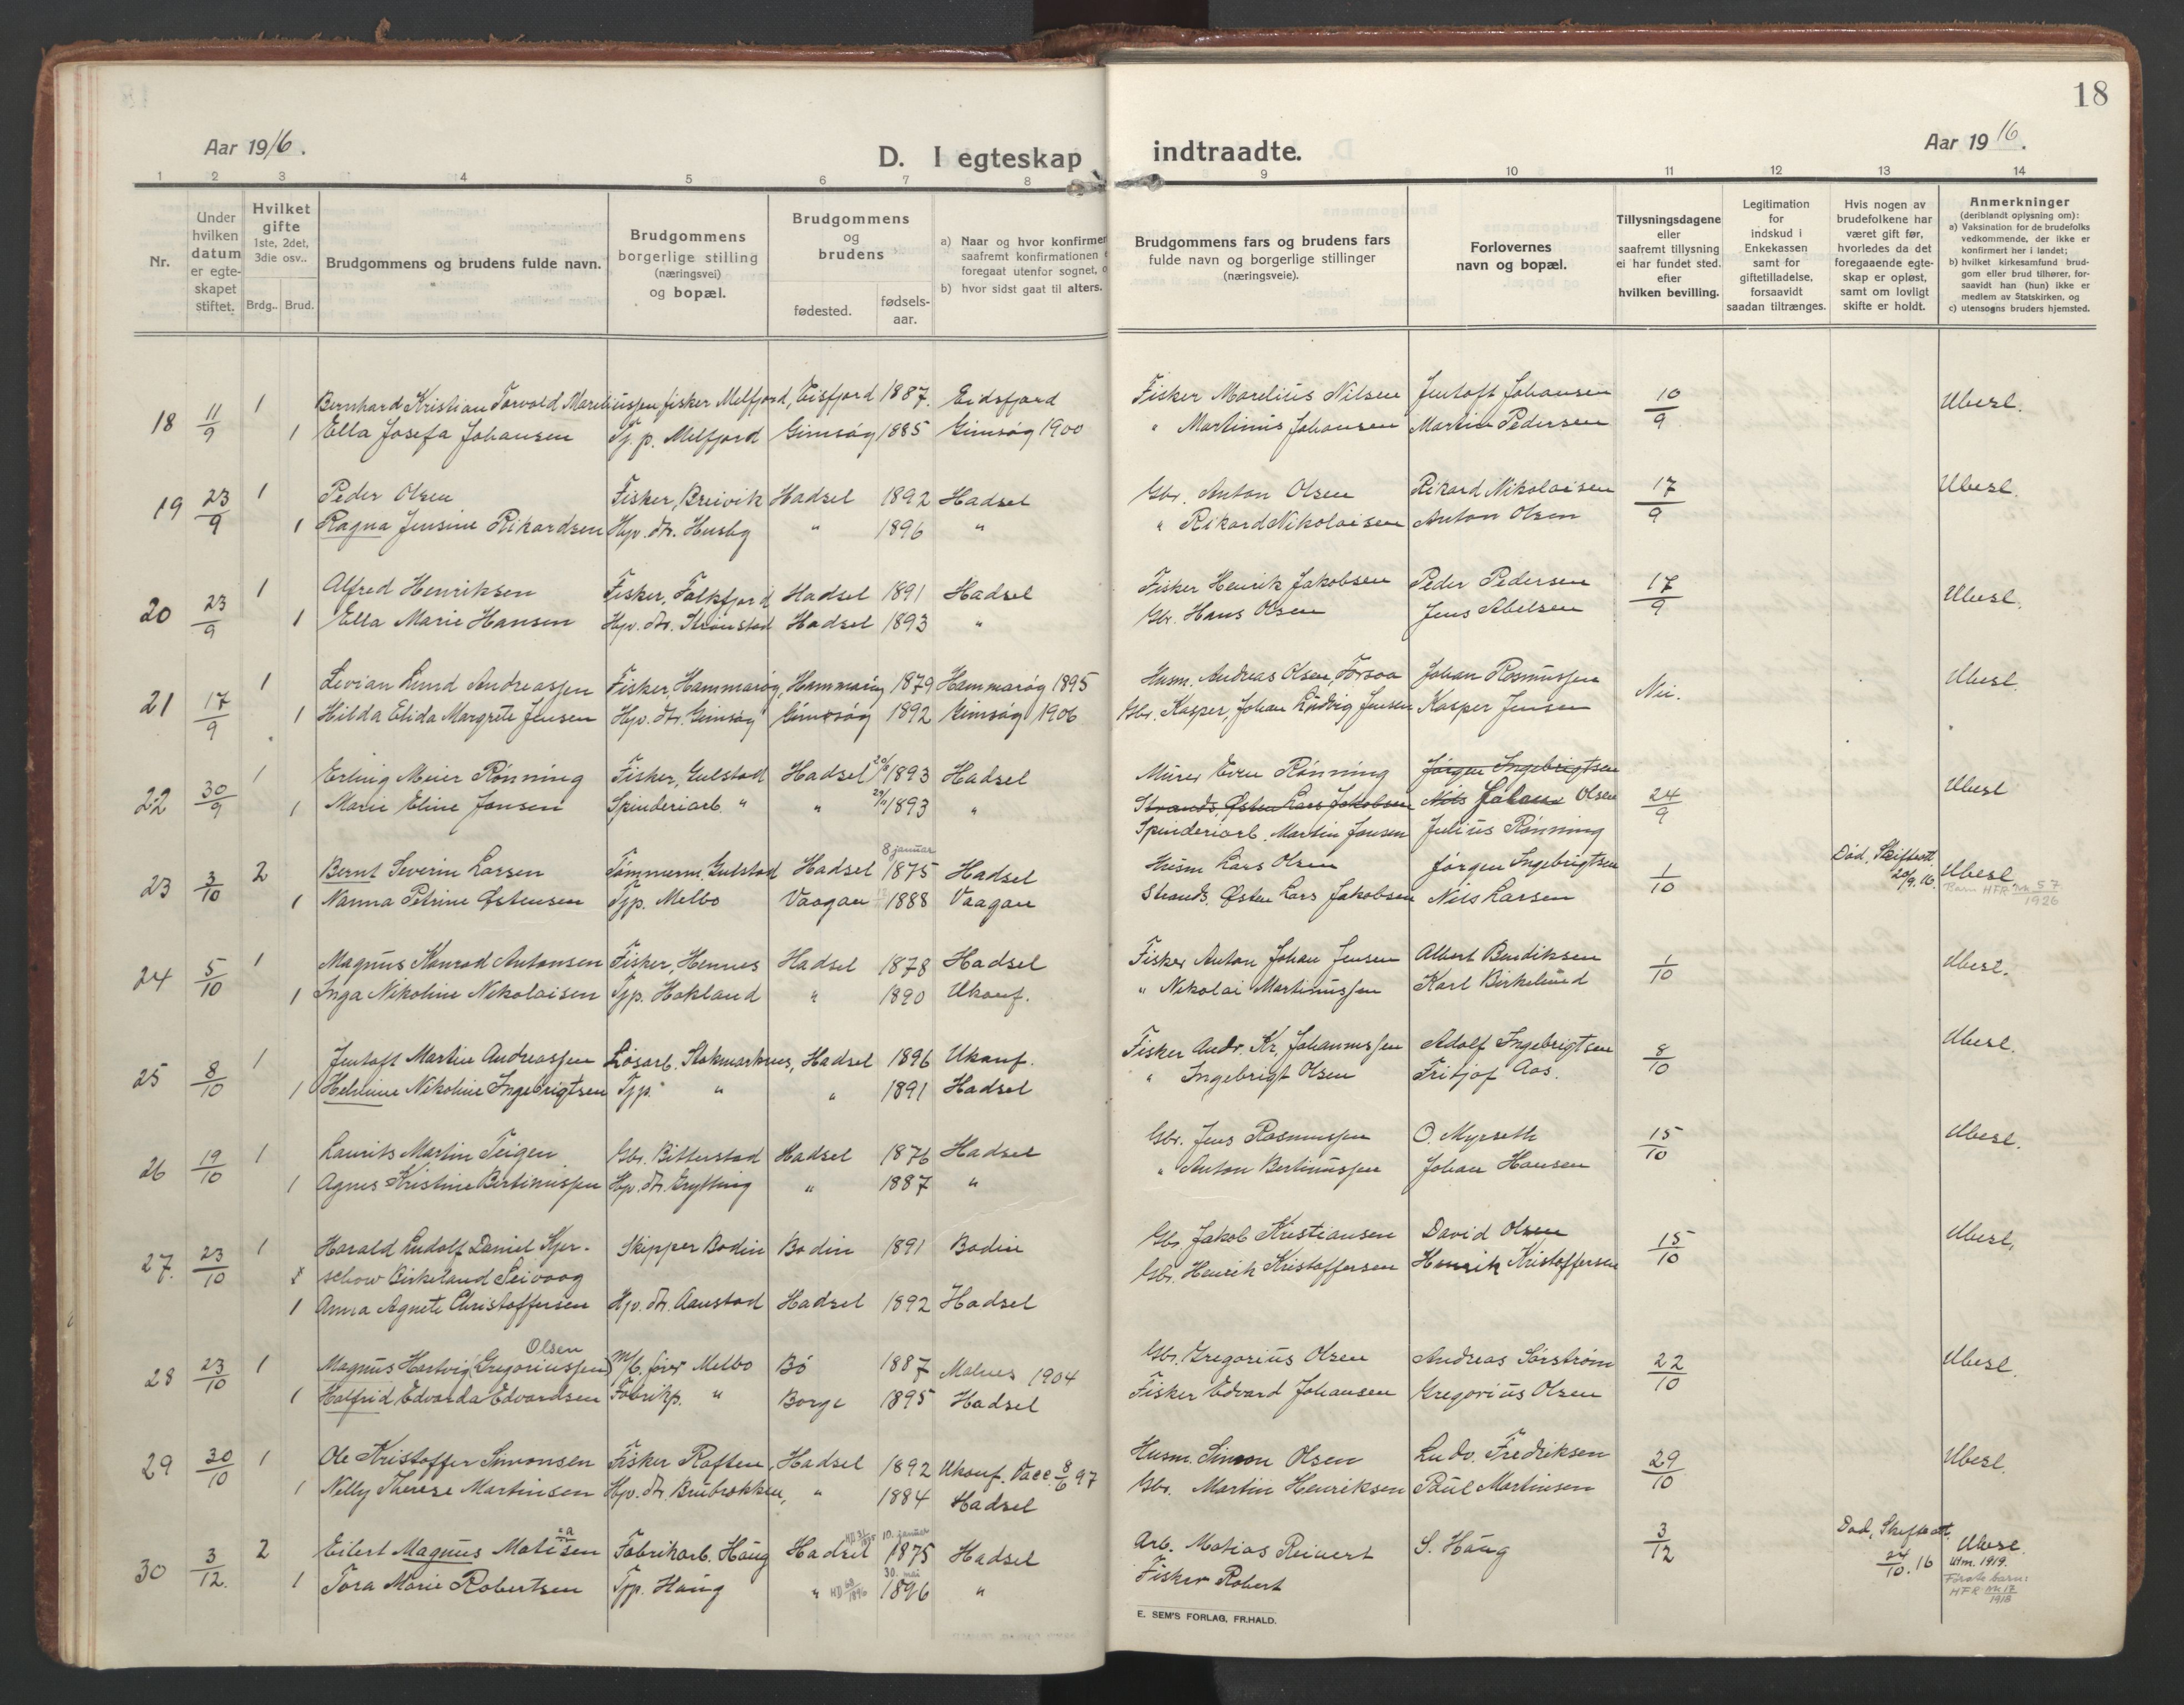 18
Aar 1916.
D. I egteskap indtraadte.
Aar 1916.
1 2 3 4 5 6 7 8 9 10 11 12 13 14
Nr.
Under hvilken datum er egte-skapet stiftet.
Hvilket gifte 1ste, 2det, 3die osv..
Brdg.. Brud.
Brudgommens og brudens fulde navn.
Brudgommens borgerlige stilling (næringsvei) og bopæl.
Brudgommens og brudens
fødested. fødsels-aar.
a) Naar og hvor konfirmer
saafremt konfirmationen
foregaat utenfor sognet, o
b) hvor sidst gaat til alters.
Brudgommens fars og brudens fars
fulde navn og borgerlige stillinger
(næringsveie).
Forlovernes
navn og bopæl.
Tillysningsdagene
eller
saafremt tillysning
ei har fundet sted.
efter
hvilken bevilling.
Legitimation
for
indskud i
Enkekassen
samt for
giftetilladelse,
forsaavidt
saadan tiltrænges.
Hvis nogen av
brudefolkene har
været gift før,
hvorledes da det
foregaaende egte-
skap er opløst,
samt om lovligt
skifte er holdt.
Anmerkninger
(deriblandt oplysning om):
a) Vaksination for de brudefolks
vedkommende, der ikke er
konfirmert her i landet;
b) hvilket kirkesamfund brud-
gom eller brud tilhører, for-
saavidt han (hun) ikke er
medlem av Statskirken, og
c) utensogns bruders hjemsted.
18 11/9 1 Bernhard Kristian Torvald Mareliussen fisker Melfjord, Eisfjord 1887. Eidsfjord Fisker Marelius Nilsen Jentoft Johansen 10/9 Ubesl.
1 Ella Josefa Johansen Tj. p. Melfjord Gimsøy 1885 Gimsøy 1900 " Martinus Johansen Martin Pedersen
19 23/9 1 Peder Olsen Fisker, Breivik Hadsel 1892 Hadsel Gbr. Anton Olsen Rikard Nikolaisen 17/9 Ubesl.
1 Ragna Jensine Rikardsen Hjv. dtr. Husby " 1896 " " Rikard Nikolaisen Anton Olsen
20 23/9 1 Alfred Henriksen Fisker, Falkfjord Hadsel 1891 Hadsel Fisker Henrik Jakobsen Peder Pedersen 17/9 Ubesl.
1 Ella Marie Hansen Hjv. dtr. Strønstad Hadsel 1893 " Gbr. Hans Olsen Jens Abelsen
21 17/9 1 Levian Lund Andreassen Fisker, Hammarøy, Hammarøy 1879 Hammarøy 1895 Husm. Andreas Olsen, Forsaa Johan Rasmussen Nei. Ubesl
1 Hilda Elida Margrete Jensen Hjv. dtr. Gimsøy Gimsøy 1892 Gimsøy 1906 Gbr. Kasper, Johan Ludvig Jensen Kasper Jensen
22 30/9 1 Erling Meier Rønning Fisker, Gulstad Hadsel 1893 Hadsel Murer Even Rønning Jørgen Ingebrigtsen 24/9 Ubesl
1 Marie Eline Jonsen Spinderiarb. " " 1893 " Strands. Østen Lars Jakobsen Nils Johan Olsen
Spinderiarb. Martin Jonsen Julius Rønning
23 3/10 2 Bernt Severin Larsen Tømmerm. Gulstad Hadsel 8 januar 1875 Hadsel Husm Lars Olsen Jørgen Ingebrigtsen 1/10 Død, Skifteatt. 20/9. 16. Ubesl
1 Nanna Petrine Østensen Tjp. Melbo Vaagan 1888 Vaagan Strands. Østen Lars Jakobsen Nils Larsen Barn HFR nr 57/1926
24 5/10 1 Magnus Konrad Antonsen Fisker, Hennes Hadsel 1878 Hadsel Fisker Anton Johan Jensen Albert Bendiksen 1/10 Ubesl.
1 Inga Nikoline Nikolaisen Tjp. Hokland " 1890 Ukonf. " Nikolai Martinussen Karl Birkelund
25 8/10 1 Jentoft Martin Andreassen Løsarb. Stokmarknes, Hadsel 1896 Ukonf. Fisker Andr. Kr. Johannessen Adolf Ingebrigtsen 8/10 Ubesl.
1 Helmine Nikoline Ingebrigtsen Tjp. " " 1891 Hadsel " Ingebrigt Olsen Fritjof Aas.
26 19/10 1 Laurits Martin Teigen Gbr. Bitterstad Hadsel 1876 Hadsel Gbr. Jens Rasmussen O. Myrseth 15/10 Ubesl.
1 Agnes Kristine Bertinussen Hjv. dtr. Grytting " 1887 " " Anton Bertinussen Johan Hansen
27. 23/10 1 Harald Ludolf Daniel Kjer- Skipper Bodin Bodin 1891 Bodin Gbr Jakob Kristiansen David Olsen 15/10 Ubesl.
schow Birkeland Seivaag Gbr. Henrik Kristoffersen Henrik Kristoffersen
1 Anna Agnete Christoffersen Hjv. dtr. Aanstad Hadsel 1892 Hadsel
28 23/10 1 Magnus Hartvig (Gregoriussen) Olsen M/b. fører Melbo Bø 1887 Malnes 1904 Gbr. Gregorius Olsen Andreas Sørstrøm 22/10 Ubesl.
1 Halfrid Edvarda Edvardsen Fabrikp. " Borge 1895 Hadsel Fisker Edvard Johansen Gregorius Olsen
29 30/10 1 Ole Kristoffer Simonsen Fisker Raften, Hadsel 1892 Ukonf. Vacc. 8/6 97 Husm. Simon Olsen Ludv. Fredriksen 29/10 Ubesl.
1 Nelly Therese Martinsen Hjv. dtr. Brubrekken, " 1884 Hadsel Gbr. Martin Henriksen Paul Martinsen
30 3/12. 2 Eilert Magnus Matisen Fabrikarb. Haug Hadsel 10. januar 1875 Hadsel Arb. Matias Reinert S. Haug 3/12 Død, Skifteatt. 24/10. 16 Ubesl.
1 Tora Marie Robertsen Tjp. Haug " 30. mai 1896 " Fisker Robert Utm. 1919.
Første barn:
HFR nr 17/1918
E. SEM'S FORLAG, FR.HALD.